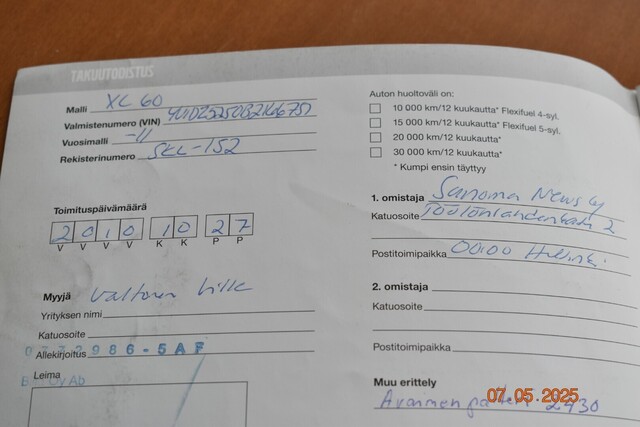 TAKUUTODISTUS
Malli XC 60
Valmistenumero (VIN)
Vuosimalli -11
Rekisterinumero SKL-152
Toimituspäivämäärä
2010 10 27
V V V V K K P P
Myyjä Valtonen Ville
Yrityksen nimi
Katuosoite
Allekirjoitus 986-5AF
Leima
Oy Ab
Auton huoltoväli on:
10 000 km/12 kuukautta* Flexifuel 4-syl.
15 000 km/12 kuukautta* Flexifuel 5-syl.
20 000 km/12 kuukautta*
30 000 km/12 kuukautta*
* Kumpi ensin täyttyy
1. omistaja Sanoma News Oy
Katuosoite Töölönlahdenkatu 2
Postitoimipaikka 00100 Helsinki
2. omistaja
Katuosoite
Postitoimipaikka
Muu erittely
Avaimen 2430
07.05.2025